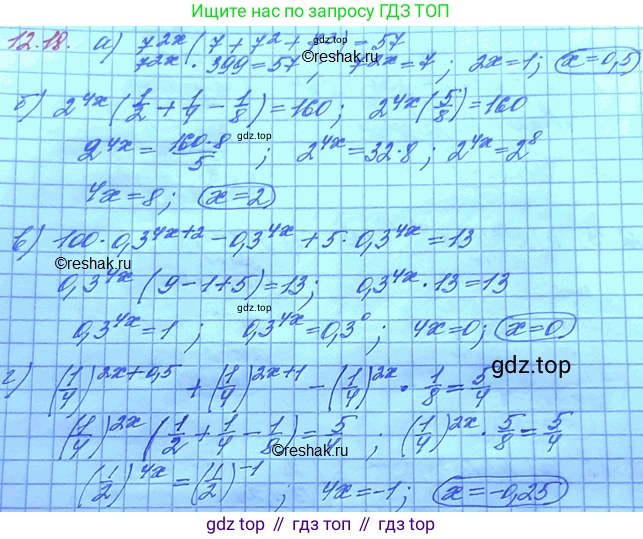 Ищите нас по запросу ГДЗ ТОП
12.18. а) 7^2x (7 + 7^2 + 7^3) = 57
7^2x · 399 = 57; 7^2x = 7; 2x = 1; x = 0,5
б) 2^4x (1/2 + 1/4 − 1/8) = 160; 2^4x (5/8) = 160
gdz.top
©reshak.ru
2^4x = 160·8/5; 2^4x = 32·8; 2^4x = 2^8
4x = 8; x = 2
в) 100 · 0,3^4x+2 − 0,3^4x + 5 · 0,3^4x = 13
©reshak.ru
0,3^4x (9 − 1 + 5) = 13; 0,3^4x · 13 = 13
0,3^4x = 1; 0,3^4x = 0,3^0; 4x = 0; x = 0
gdz.top
г) (1/4)^2x+0,5 + (1/4)^2x+1 − (1/4)^2x · 1/8 = 5/4
(1/4)^2x (1/2 + 1/4 − 1/8) = 5/4; (1/4)^2x · 5/8 = 5/4
©reshak.ru
(1/2)^4x = (1/2)^−1; 4x = −1; x = −0,25
gdz.top // гдз топ // гдз.топ